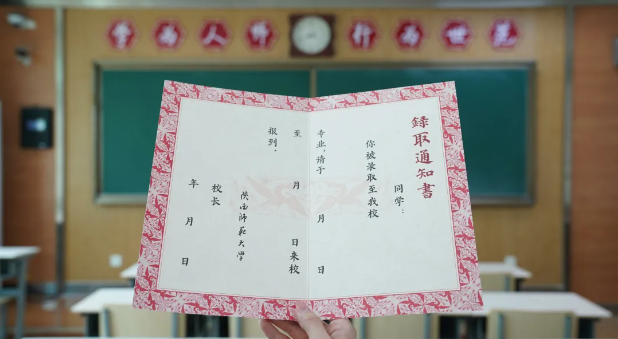 学为人师 行为世范
録取通知書
同学：
你被录取至我校
专业，请于 月 日
至 月 日来校
报到．
陕西師範大学
校长
年 月 日